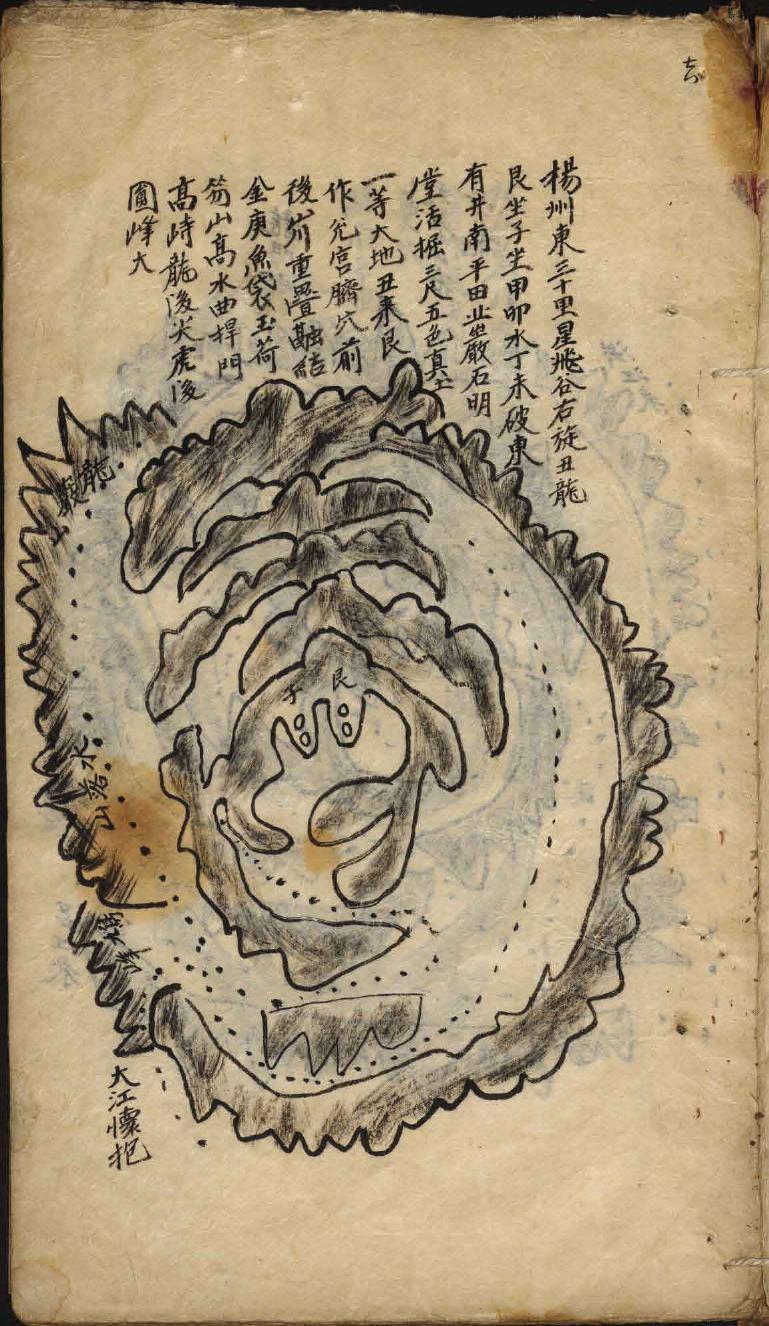 楊州東三十里星飛谷右旋丑龍
艮坐子坐甲卯水丁未破東
有井南平田北坐嚴石明
堂活掘三尺五色真土
一等大地丑来艮
作兊宮臍穴前
後岺重疊融結
金庚魚袋玉荷
笏山高水曲捍門
高峙龍後尖虎後
圓峰大
艮
子
龍
水落山
大江懷抱